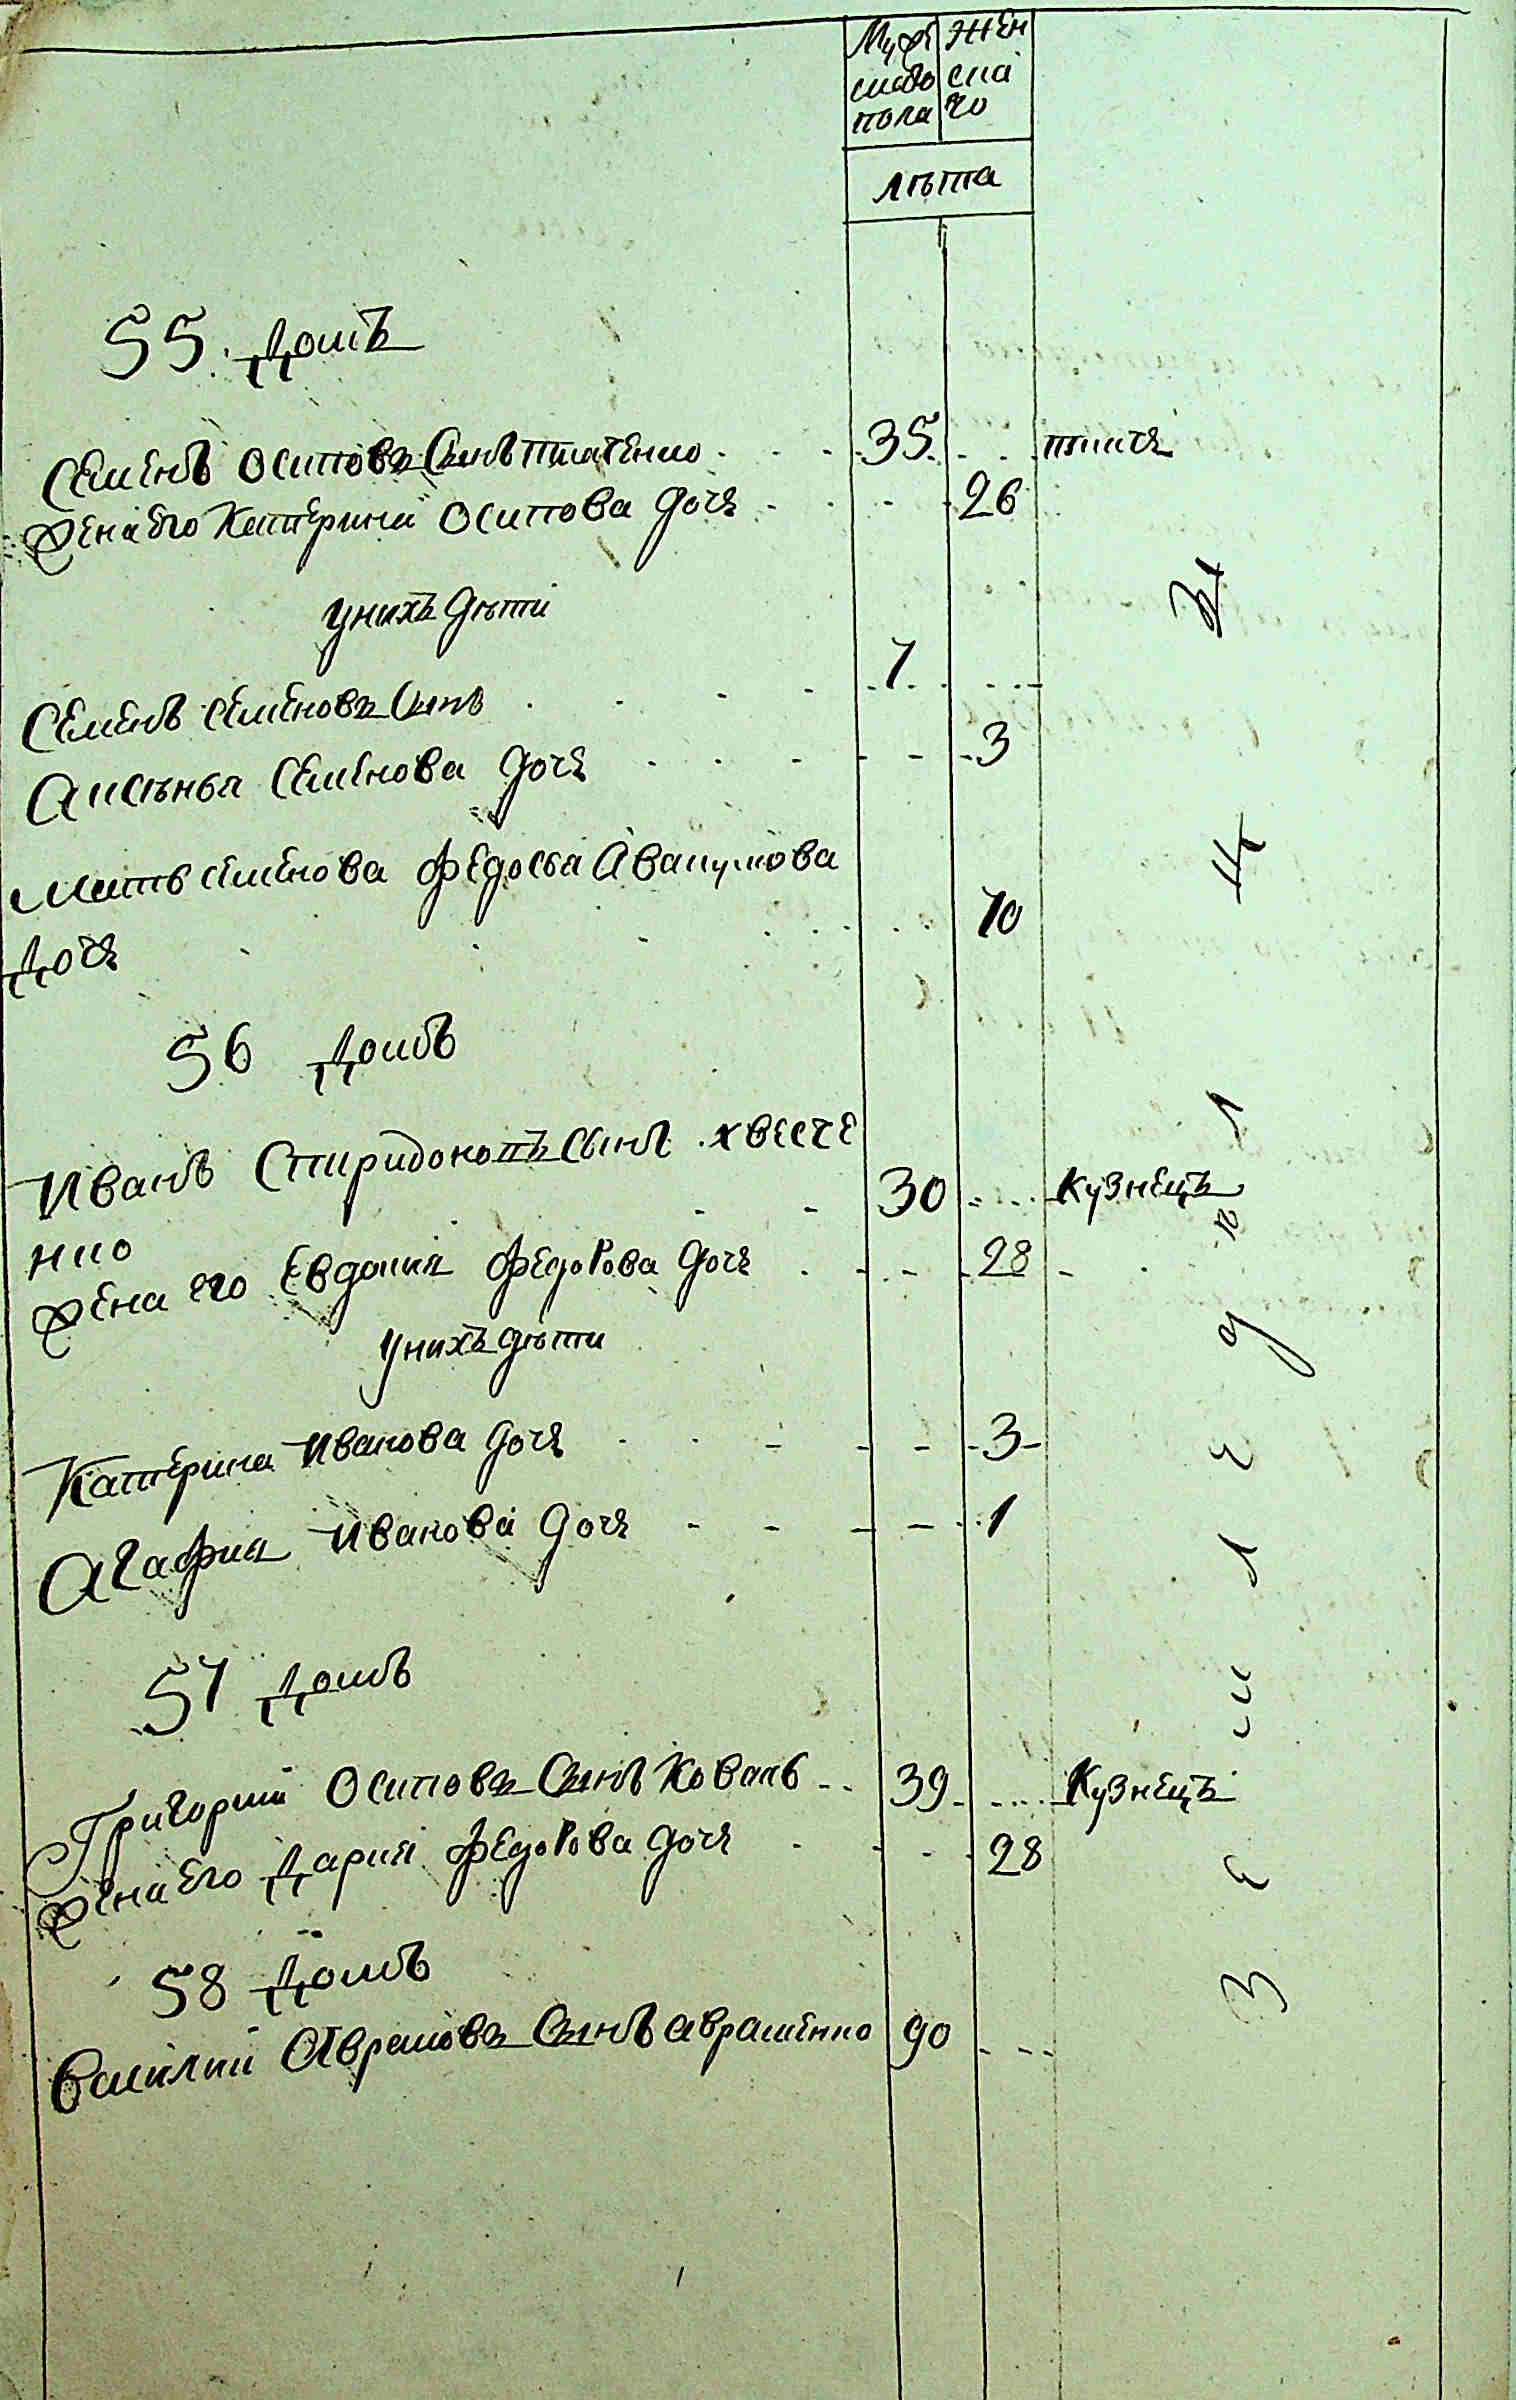 Мужескаго пола | Женскаго
лѣта
55. Домъ
Семенъ Осиповъ Сынъ ткаченко 35 ткачь
жена его Катерина Осипова дочь 26
у нихъ дѣти
Семенъ Семеновъ Сынъ 7
Аксѣнья Семенова дочь 3
Мать Семенова Федосья Авакумова
дочь 70
56 Домъ
Иванъ Спиридоновъ сынъ хвесче
нко 30 Кузнецъ
жена его Евдокия Федорова дочь 28
у нихъ дѣти
Катерина Иванова дочь 3
Агафия Иванова дочь 1
57 Домъ
Григорий Осиповъ Сынъ Коваль 39 Кузнецъ
жена его Дария Федорова дочь 28
58 Домъ
Василий Аврамовъ Сынъ авраменко 90